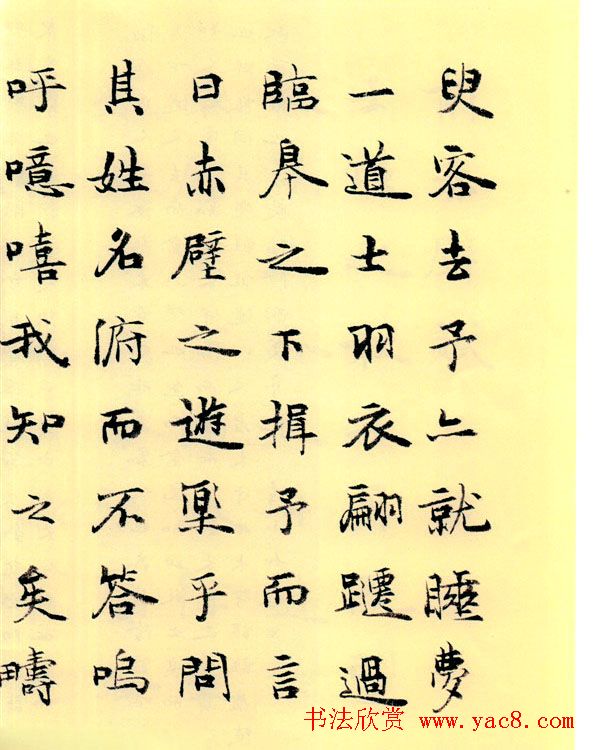 臾客去予亦就睡夢
一道士羽衣翩躚過
臨皋之下揖予而言
曰赤壁之遊樂乎問
其姓名俯而不答嗚
呼噫嘻我知之矣疇
书法欣赏 www.yac8.com